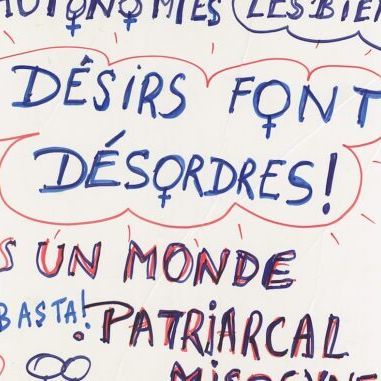 AUTONOMIES LESBIEN
DÉSIRS FONT
DÉSORDRES!
S UN MONDE
BASTA!
PATRIARCAL
MISOGYNE